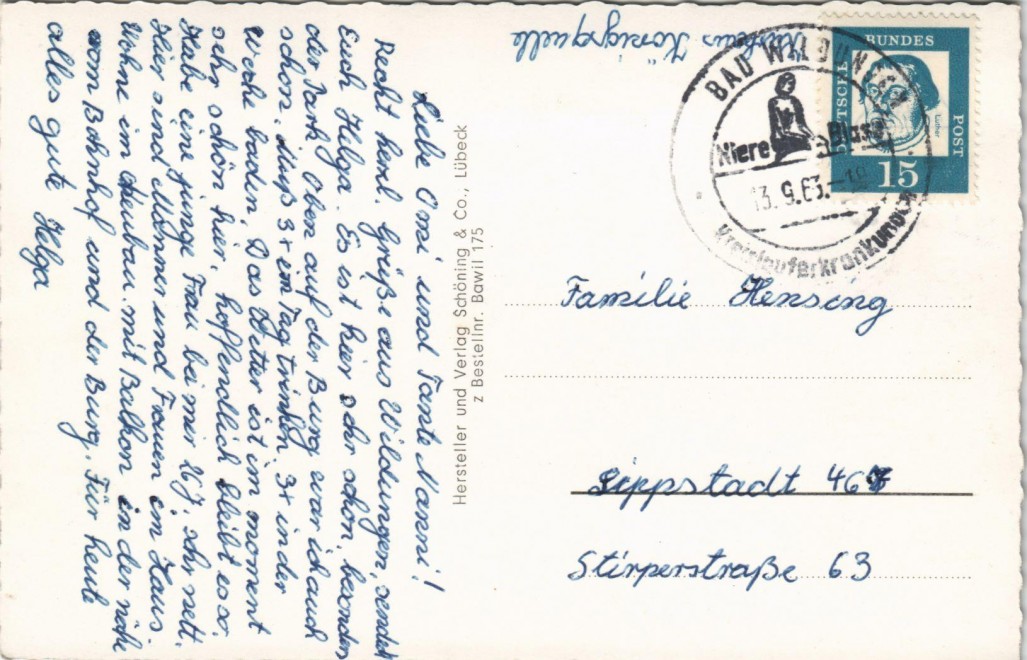 Liebe Omi und Tante Nanni!
Recht herzl. Grüße aus Wildungen, sendet
Euch Helga. Es ist hier sehr schön, besonders
der Park. Oben auf der Burg war ich auch
schon. Muß 3x im Tag trinken. 3x in der
Woche baden. Das Wetter ist im moment
sehr schön hier, hoffendlich bleibt es so.
Habe eine junge Frau bei mir 26 J. sehr nett.
Hier sind Männer und Frauen im Haus.
Wohne im Neubau mit Balkon in der nähe
vom Bahnhof und der Burg. Für heute
alles gute Helga
Hersteller und Verlag Schöning & Co., Lübeck
z Bestellnr. Bawil 175
Königsquelle
BAD WILDUNGEN
Niere Blase
13.9.63.-18
Kreislauferkrankungen
DEUTSCHE
BUNDES
POST
Luther
15
Familie Hensing
Lippstadt 467
Stirperstraße 63